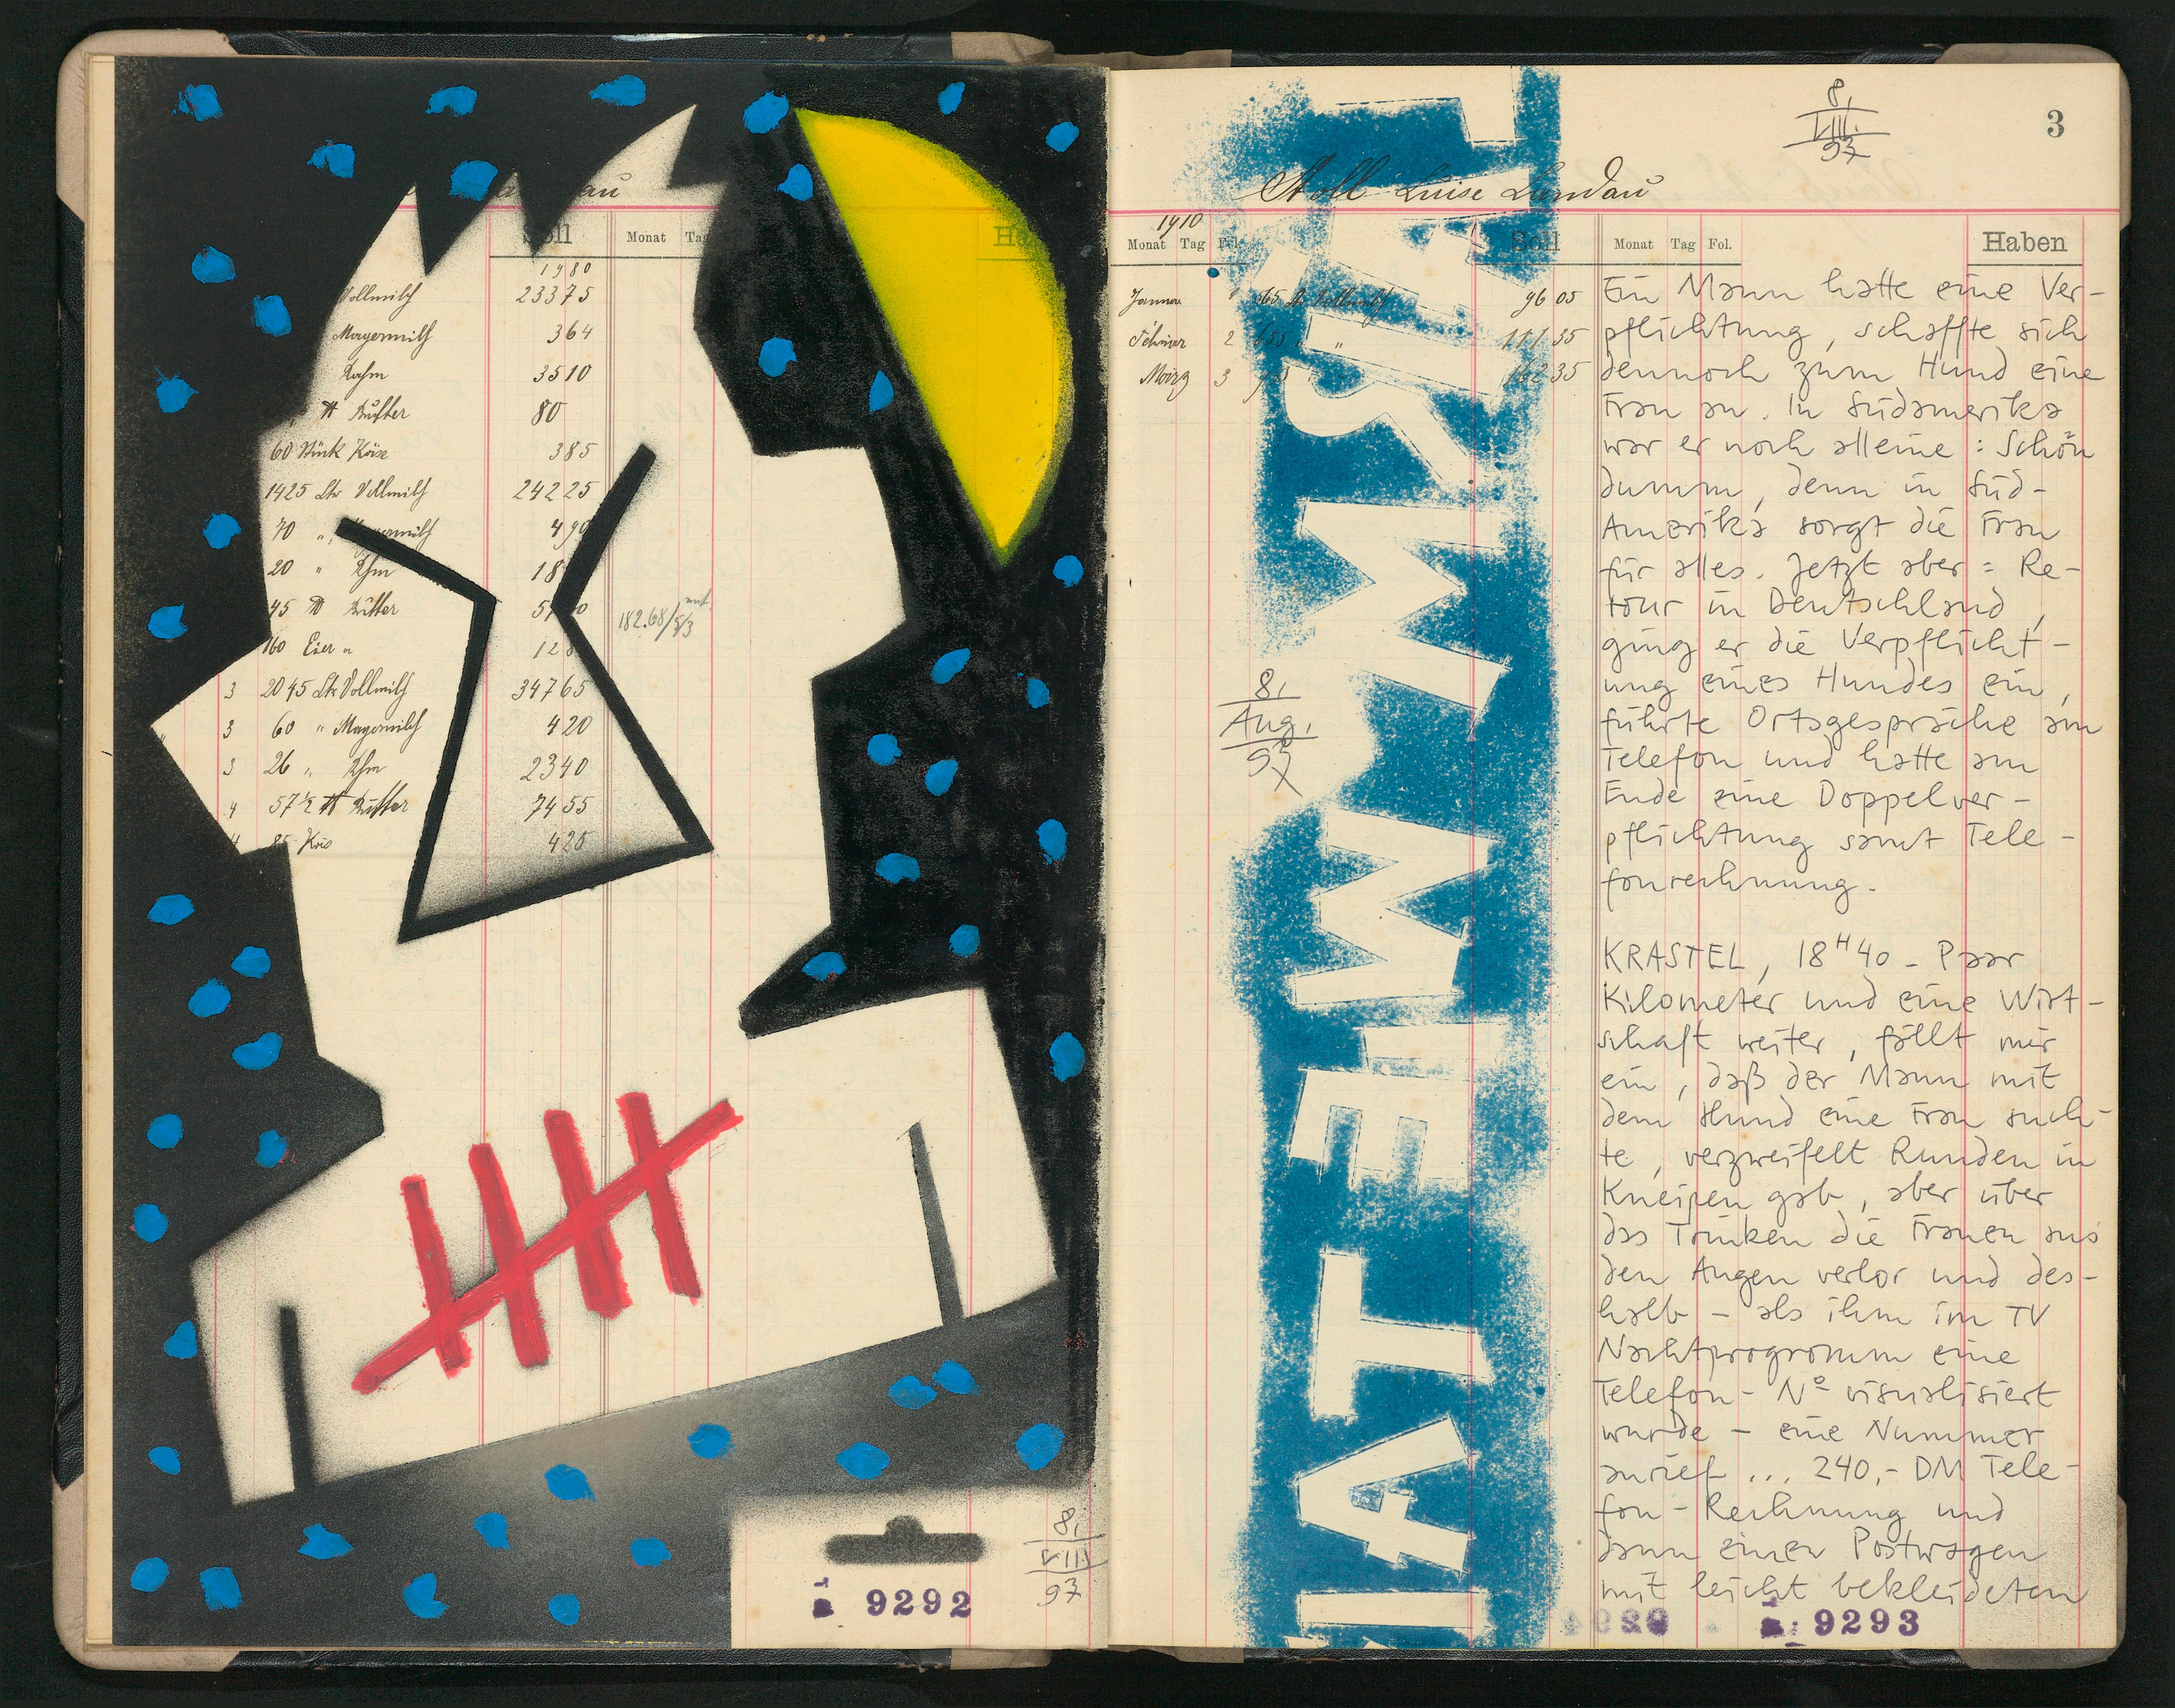 Soll
Monat Tag
1980
Vollmilch 23375
Magermilch 364
Rahm 3510
Butter 80
60 Stück Käse 385
1425 Ltr Vollmilch 24225
70 " Magermilch 490
20 " Rhm 18
45 ℔ Butter
182.68/53
160 Eier
3 2045 Ltr Vollmilch 34765
3 60 " Magermilch 420
3 26 " Rhm 2340
4 57½ ℔ Butter 7455
4 85 Käs 425
9292
8.
VIII.
97
8.
VIII.
97
3
Stoll Luise Landau
1910
Monat Tag Fol. Soll Monat Tag Fol. Haben
Januar 1 565 Ltr Vollmilch 96 05
2 " 111 35
März 3 162 35
8.
Aug.
97
Ein Mann hatte eine Ver-
pflichtung, schaffte sich
dennoch zum Hund eine
Frau an. In Südamerika
war er noch alleine: Schön
dumm, denn in Süd-
Amerika sorgt die Frau
für alles. Jetzt aber: Re-
tour in Deutschland,
ging er die Verpflicht-
ung eines Hundes ein,
führte Ortsgespräche am
Telefon und hatte am
Ende eine Doppelver-
pflichtung samt Tele-
fonrechnung.
KRASTEL, 18H40 - Paar
Kilometer und eine Wirt-
schaft weiter, fällt mir
ein, daß der Mann mit
dem Hund eine Frau such-
te, verzweifelt Runden in
Kneipen gab, aber über
das Trinken die Frauen aus
den Augen verlor und des-
halb - als ihm im TV
Nachtprogramm eine
Telefon-Nº visualisiert
wurde - eine Nummer
anrief ... 240,- DM Tele-
fon-Rechnung und
dann einen Postwagen
mit leicht bekleideten
9293